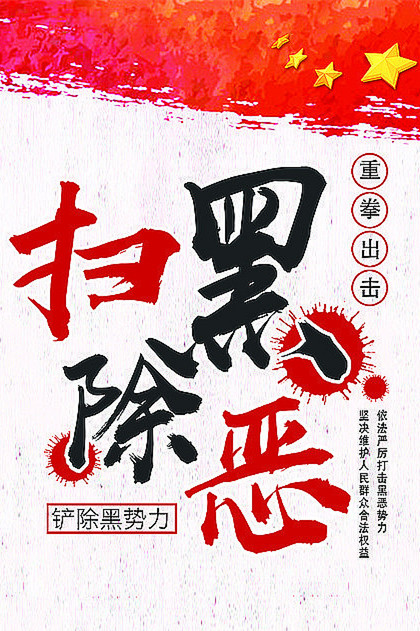 扫黑除恶
重拳出击
依法严厉打击黑恶势力
坚决维护人民群众合法权益
铲除黑势力